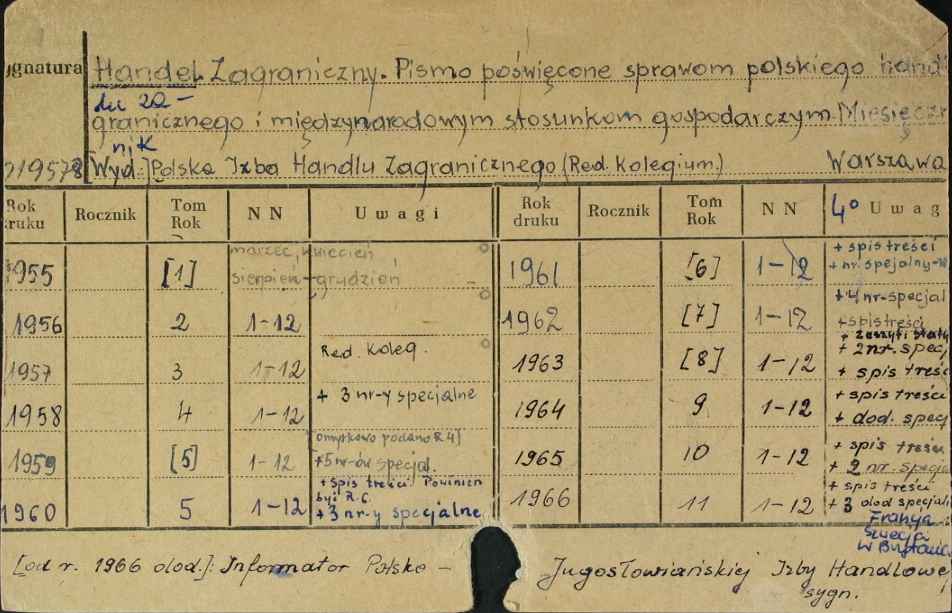 ignatura Handel Zagraniczny. Pismo poświęcone sprawom polskiego hand
lu za-
granicznego i międzynarodowym stosunkom gospodarczym. Miesięcz
nik
219578 [Wyd.] Polska Izba Handlu Zagranicznego (Red. Kolegium) Warszawa
Rok druku Rocznik Tom Rok NN Uwagi Rok druku Rocznik Tom Rok NN 4° Uwag
1955 [1] marzec, kwiecień sierpień-grudzień 1961 [6] 1-12 + spis treści + nr. spejalny
1956 2 1-12 1962 [7] 1-12 + 4 nr-specjal + spis treści
1957 3 1-12 Red. Koleg. 1963 [8] 1-12 + zeszyt + 2 nr. specj + spis treśc
1958 4 1-12 + 3 nr-y specjalne 1964 9 1-12 + spis treści + dod. specj
1959 [5] 1-12 [omyłkowo podano R 4] +5 nr-ów specjal. 1965 10 1-12 + spis treści + 2 nr. specja
1960 5 1-12 + spis treści Powinien być R. 6. + 3 nr-y specjalne 1966 11 1-12 + spis treści + 3 dod specjal
Francja
Szwecja
W Brytania
[od r. 1966 dod.]: Informator Polsko - Jugosłowiańskiej Izby Handlowe
sygn.